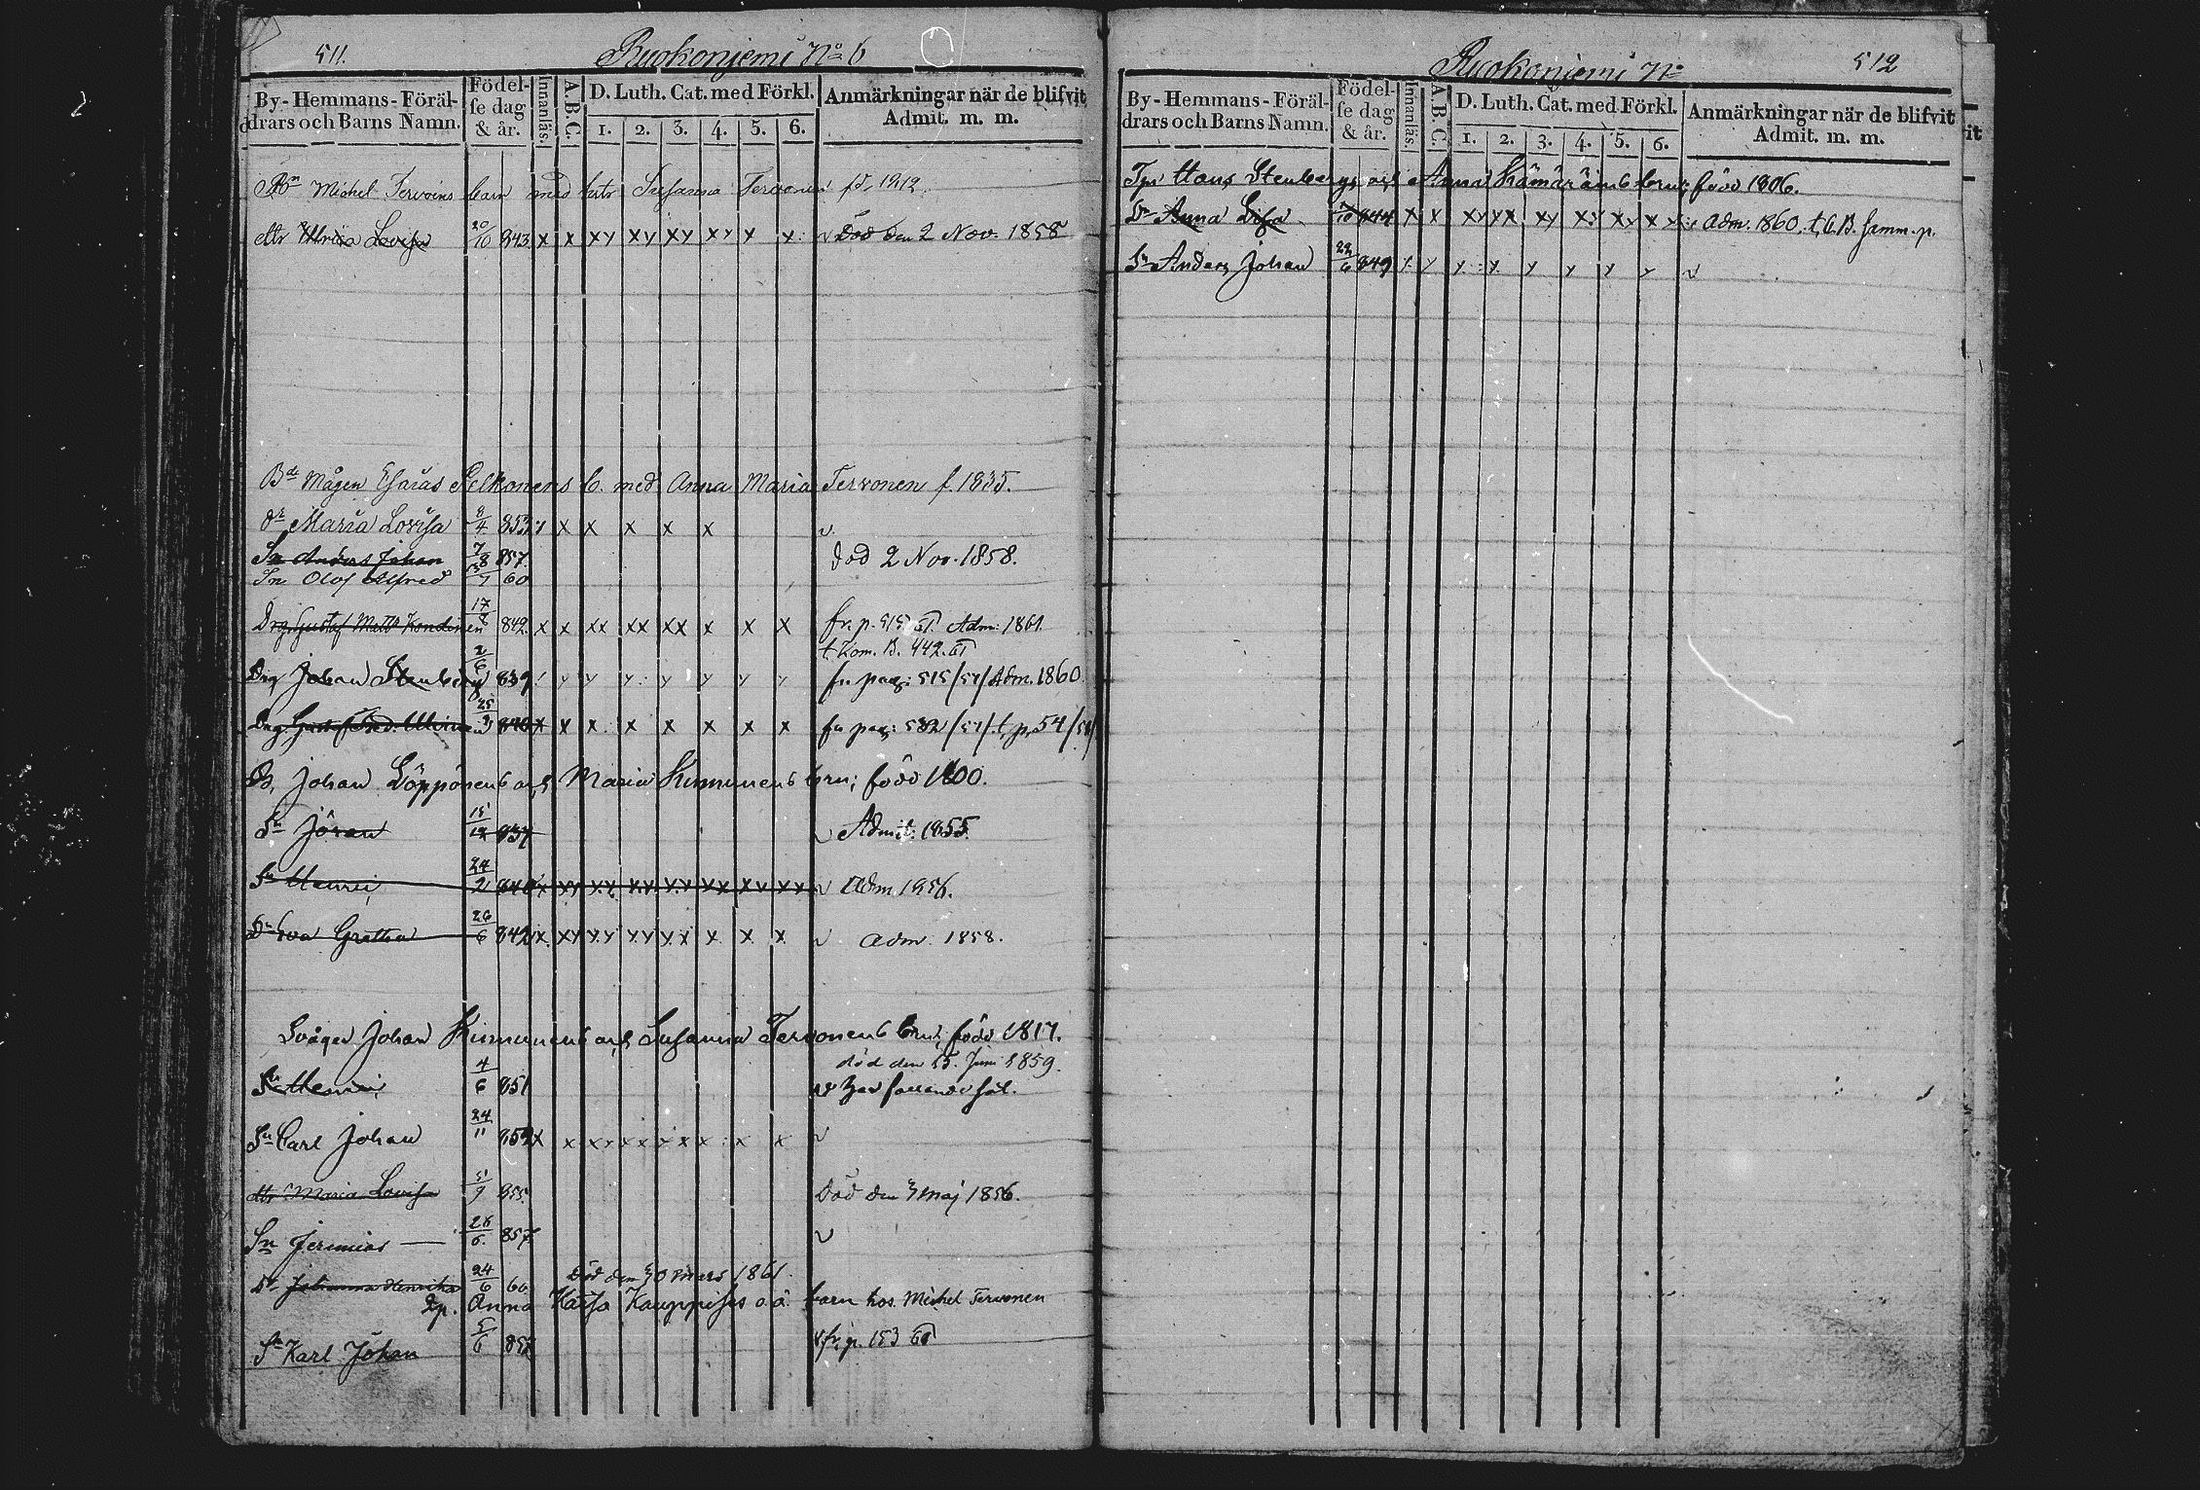 511.
Ruokoniemi No 6
By-Hemmans-Föräl-
drars och Barns Namn.
Födel-
se dag
& år.
Innanläs.
A.B.C.
D. Luth. Cat. med Förkl.
1. 2. 3. 4. 5. 6.
Anmärkningar när de blifvit
Admit. m. m.
Michel Tervoins barn med hust Susanna Tervonen fd. 1812.
dtr Ulrica Lovisa 20/10 843 x x xy xy xy xy x x Död den 2 Nov. 1858
Bde Mågen Esaias Pelkonens b. med Anna Maria Tervonen f. 1835.
dr Maria Lovisa 8/4 853 x x x x x x
Sn Anders Johan 7/8 857 död 2 Nov. 1858.
Sn Olof Alfred 60
Drg Gustaf Matts Kondinen 17/8 842 x x xx xx xx x x x fr. p. 515 Adm: 1861
t. Kom. B. 442.
Drg Johan Stenberg 2/6 839 y y y y y y y fr pag: 515/51/ Adm. 1860.
Drg. 25/3 840 x x x x x x x x fr pag: 582/51/ t, p, 54/
B, Johan Löppönens och Maria Kinnunens brn; född 1800.
Sn Jöran 15/12 837 Admit: 1855.
Sn Henric 24/2 840 x xy xx xy xy xx xy xx Adm 1856.
Dr Eva Gretha 26/6 842 x xy yy yy yx x x x Adm. 1858.
Svåger Johan Kinnunens och Susanna Tervonens brn; född 1817.
död den 15. Juni 1859.
Sn Henric 4/6 851
Sn Carl Johan 24/11 852 x x xx xx xx x x x
dtr Maria Lovisa 5/9 855. Död den 3 Maj 1856.
Sn Jeremias — 26/6. 857
Dr Johanna Henrika 24/6 60 Död den 30 Mars 1861
Anna Kaisa Kauppises o.ä. barn hos Michel Tervonen
Sn Karl Johan 5/6 857 fr. p. 153
Ruokoniemi No
512
By-Hemmans-Föräl-
drars och Barns Namn.
Födel-
se dag
& år.
Innanläs.
A.B.C.
D. Luth. Cat. med Förkl.
1. 2. 3. 4. 5. 6.
Anmärkningar när de blifvit
Admit. m. m.
Hans Stenbergs och Anna Kämäräins brn; född 1806.
Dr Anna Lisa 844 x x xy xx xy xy xy xy Adm. 1860. t, C.B. samm. p.
Sn Anders Johan 22/6 849 y y y y y y y y